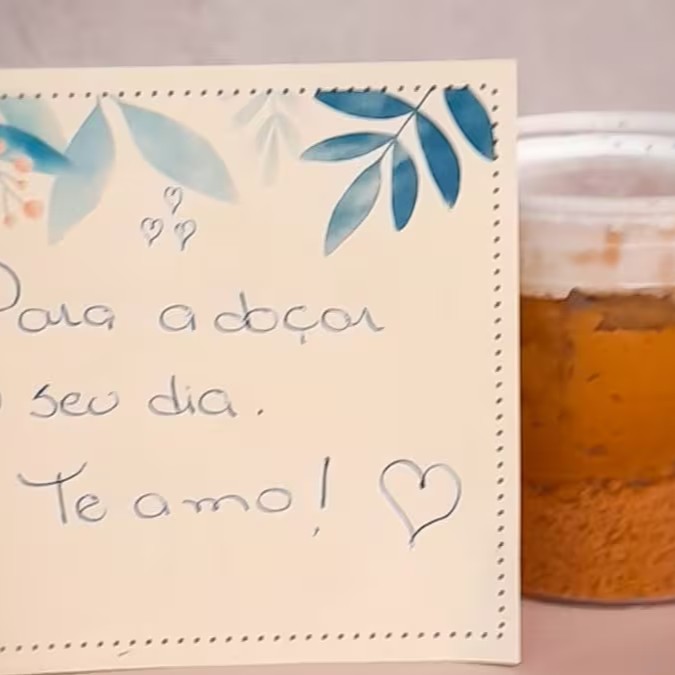 Para adoçar
o seu dia.
Te amo!